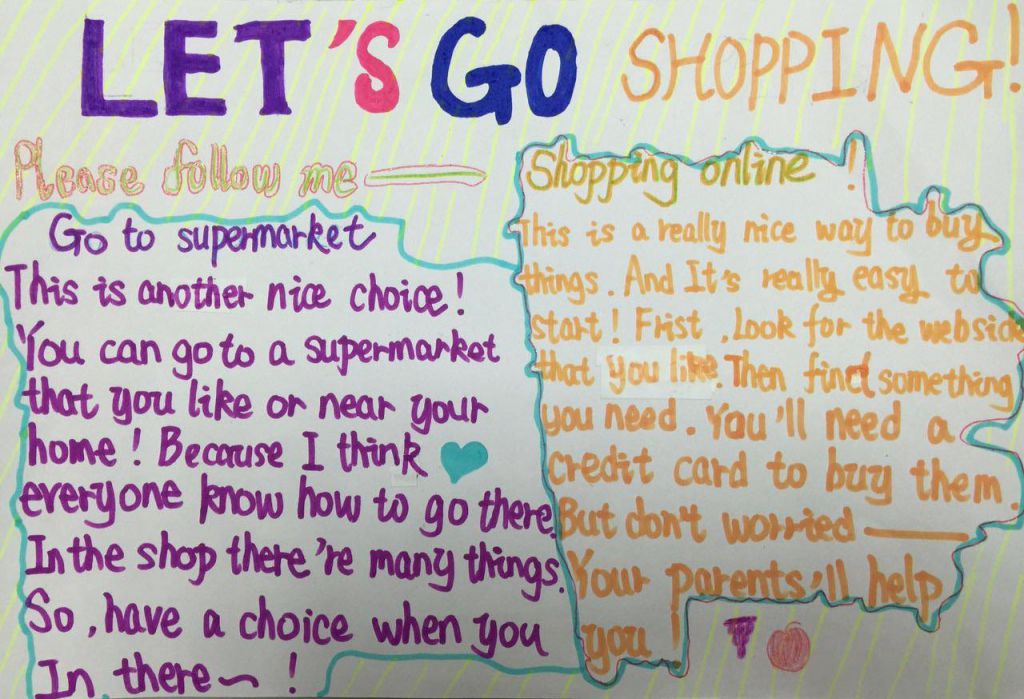 LET'S GO SHOPPING!
Please follow me —
Go to supermarket
This is another nice choice!
You can go to a supermarket
that you like or near your
home! Because I think
everyone know how to go there.
In the shop there're many things.
So, have a choice when you
In there~!
Shopping online!
This is a really nice way to buy
things. And It's really easy to
start! Frist, Look for the webside
that you like. Then find something
you need. You'll need a
credit card to buy them.
But don't worried —
Your parents'll help
you!